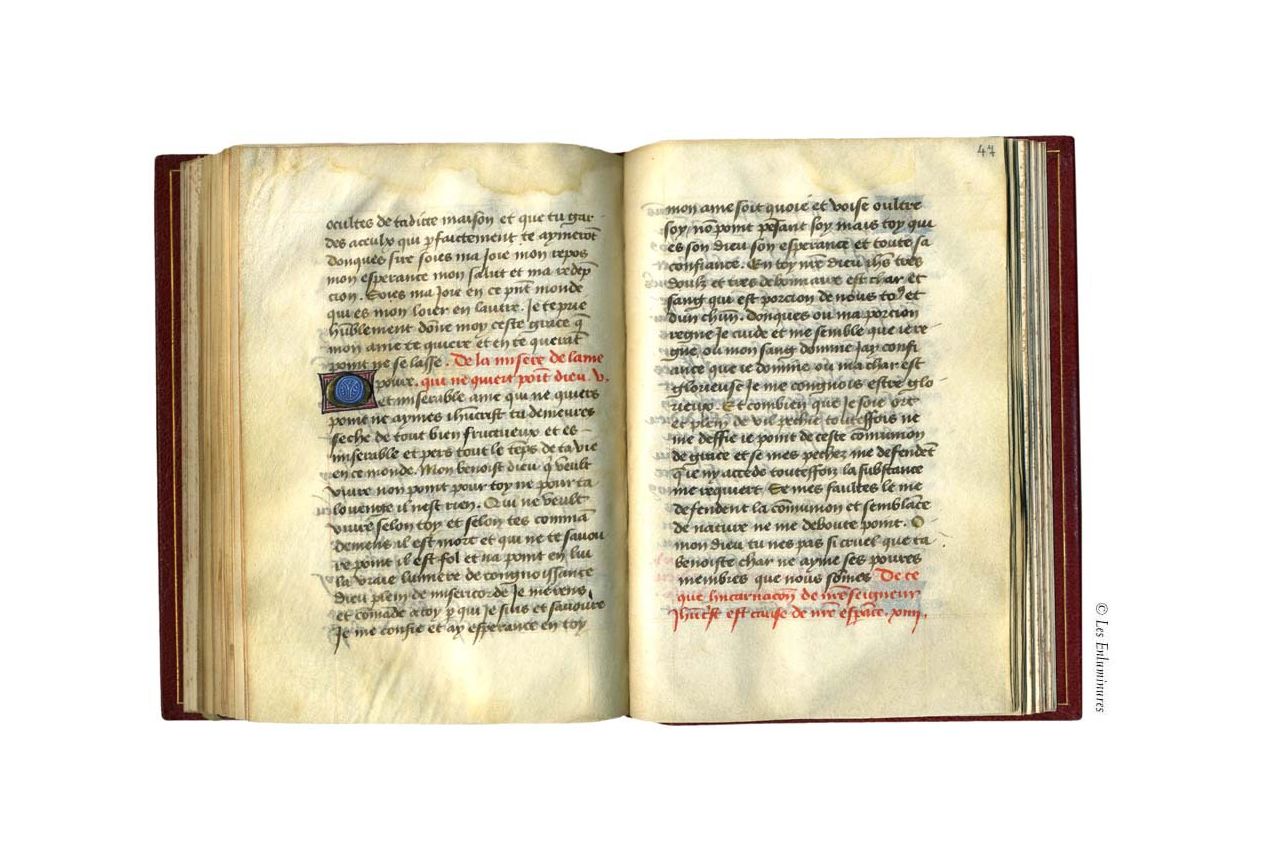 ocultes de ta dicte maison et que tu gar-
des a ceulx qui pfaictement te aymerōt
Donques sire soies ma Joie mon repos
mon esperance mon salut et ma redēp
cion. Soies ma Joie en ce pn̄t monde
qui es mon loier en lautre. Je te prie
hūblement dōne moy ceste grace q̄
mon ame te quiere et en te querāt
point ne se lasse. De la misere de lame
poure. qui ne quiert poīt dieu. v.
O et miserable ame qui ne quiers
point ne aymes ihūcrist tu demeures
seche de tout bien fructueux et es
miserable et pers tout le tēps de ta vie
en ce monde. Mon benoist dieu q̄ veult
vivre non point pour toy ne pour ta
lovenge il nest rien. Qui ne veult
vivre selon toy et selon tes commā
demens il est mort et qui ne te savou
re point il est fol et na point en lui
la vraie lumiere de congnoissance
Dieu plein de misericorde Je me rens
et cōmāde a toy p qui Je suis et savoure
Je me confie et ay esperance en toy
47
mon ame soit quoie et voise oultre
soy, nō point pēsant soy mais toy qui
es son dieu son esperance et toute sa
confiance. En toy nr̄e dieu ih̄s tres
doulz et tres debonnaire est char et
sang qui est porcion de nous to9 et
dun chūn. donques ou ma porcion
regne Je cuide et me semble que ie re-
gne, ou mon sang domine Jay confi
ance que ie domine, ou ma char est
glorieuse Je me congnois estre glo-
rieux. Et combien que Je soie ort
et plein de vil pechie toutesfois ne
me deffie ie point de ceste comunion
de grace et se mes pechez me defendēt
que ny accede toutesfois la substance
me requiert Se mes faultes le me
defendent la cōmunion et semblāce
de nature ne me deboute point. O
mon dieu tu nes pas si cruel que ta
benoiste char ne ayme ses poures
membres que nous sōmes De ce
que lincarnacōn de nr̄eseigneur
Jhūcrīst est cause de nr̄e espāce. xiiij.
© Les Enluminures